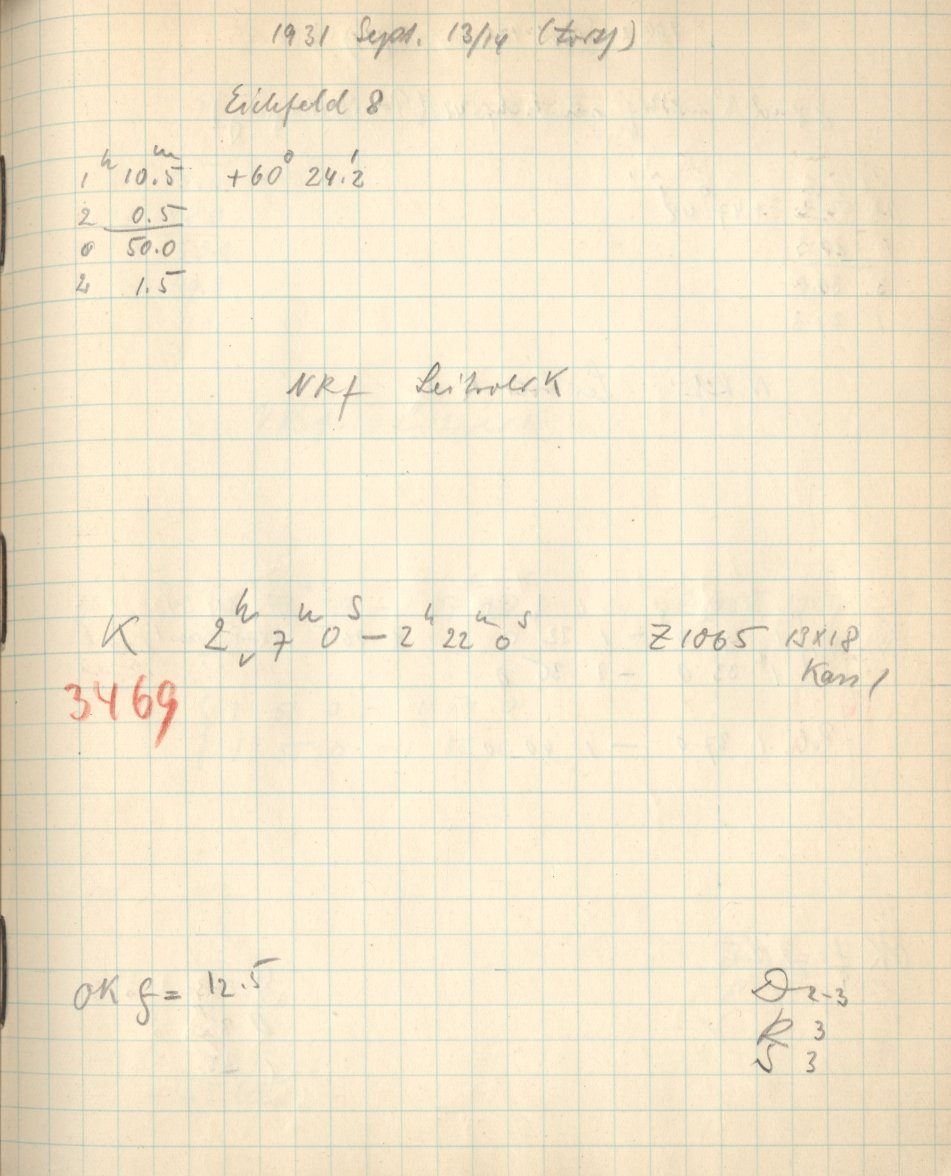 1931 Sept. 13/14 (Forts)
Eichfeld 8
1ʰ 10.5ᵐ +60° 24.2'
2 0.5
0 50.0
2 1.5
NRf Leitrohr K
K 2ʰ 7ᵐ 0ˢ – 2ʰ 22ᵐ 0ˢ Z 1065 13x18
Kass 1
3469
OK f = 12.5
D 2-3
R 3
S 3